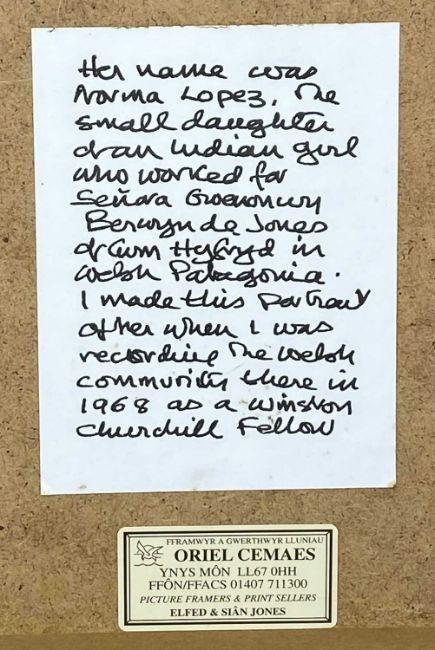 Her name was
Norma Lopez, the
small daughter
of an Indian girl
who worked for
Señora Gwenonwy
Berwyn de Jones
of Cwm Hyfryd in
Welsh Patagonia.
I made this portrait
of her when I was
recording the Welsh
community there in
1968 as a Winston
Churchill Fellow
FFRAMWYR A GWERTHWYR LLUNIAU
ORIEL CEMAES
YNYS MÔN LL67 0HH
FFÔN/FFACS 01407 711300
PICTURE FRAMERS & PRINT SELLERS
ELFED & SIÂN JONES